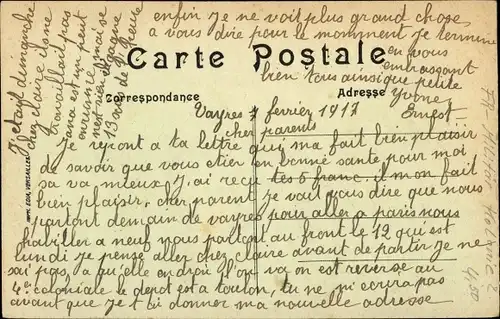 Carte Postale
Correspondance
Adresse
Vayres 7 fevrier 1917
cher parents
Je repront a ta lettre qui ma fait bien plaisir
de savoir que vous etier en bonne santé pour moi
sa va mieux, J,ai reçu tes 5 franc il mon fait
bien plaisir, cher parent Je vait vous dire que nous
partont demain de vayres pour aller a paris nous
habiller a neuf nous partont au front le 12 qui est
lundi Je pense aller cher claire avant de partir Je ne
sai pas, a qu'elle en droit l'on va on est reverse au
4e coloniale le depot est a toulon, tu ne mi ecrira pas
avant que Je t ai donner ma nouvelle adresse
enfin Je ne voit plus grand chose
a vous dire pour le momment Je termine
en vous
embrassant
bien tous ainsique petite
Yvonne
Ernest
J'etait dimanche
cher claire il sne
travaillait pas
Jana est un peut